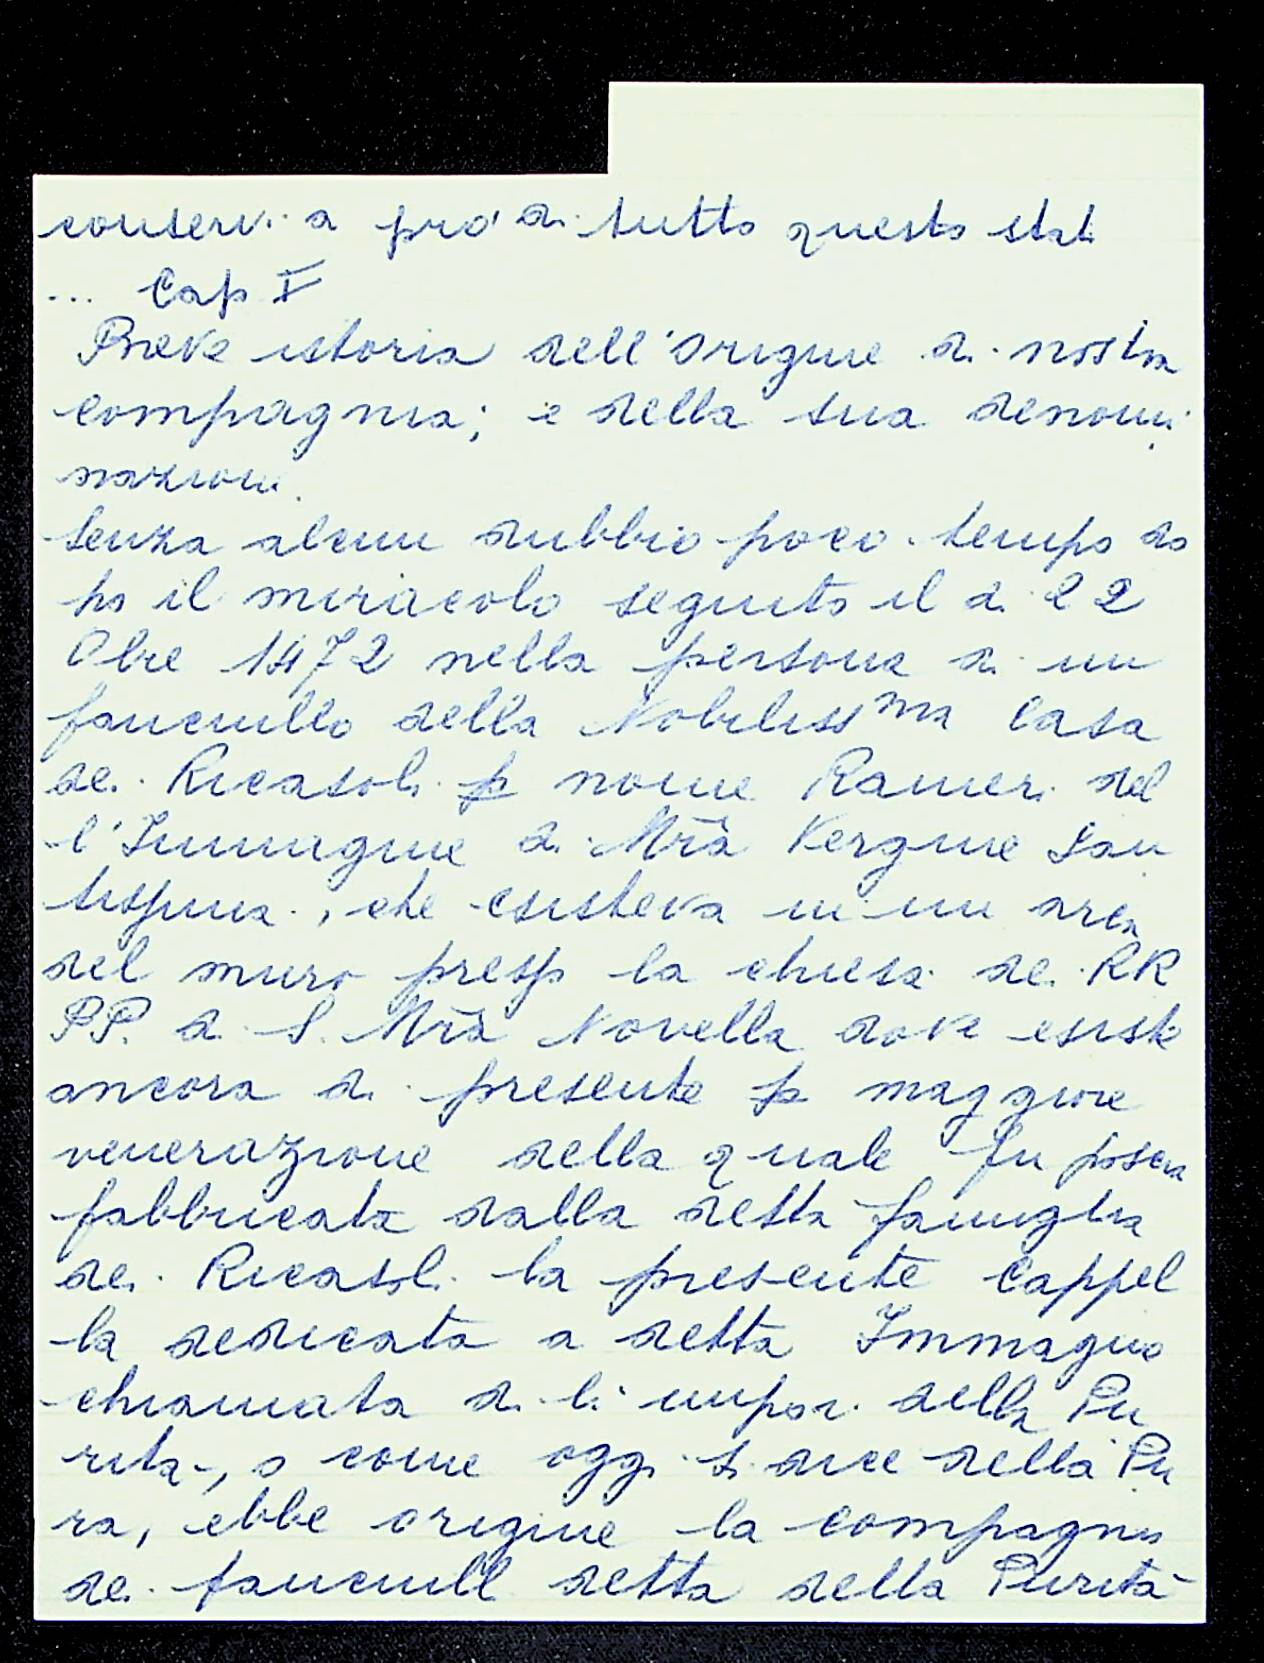 conservi a prò di tutto questo stato
... Cap I
Breve istoria dell'origine di nostra
compagnia; e della sua denomi
nazioni.
Senza alcun dubbio poco tempo do
po il miracolo seguito il dì 22
Obre 1472 nella persona di un
fanciullo della Nobiliss ma Casa
de Ricasoli p nome Ranieri del
l'Immagine di Mrā Vergine San
tissima, che esisteva in un arca
del muro presso la chiesa de RR
PP. di S. Mrā Novella dove esiste
ancora di presente p maggiore
venerazione della quale fu poscia
fabbricata dalla detta famiglia
dei Ricasoli la presente Cappel
la dedicata a detta Immagine
chiamata di li impoi della Pu
rita, o come oggi si dice della Pu
ra, ebbe origine la compagnia
de fanciulli detta della Purità